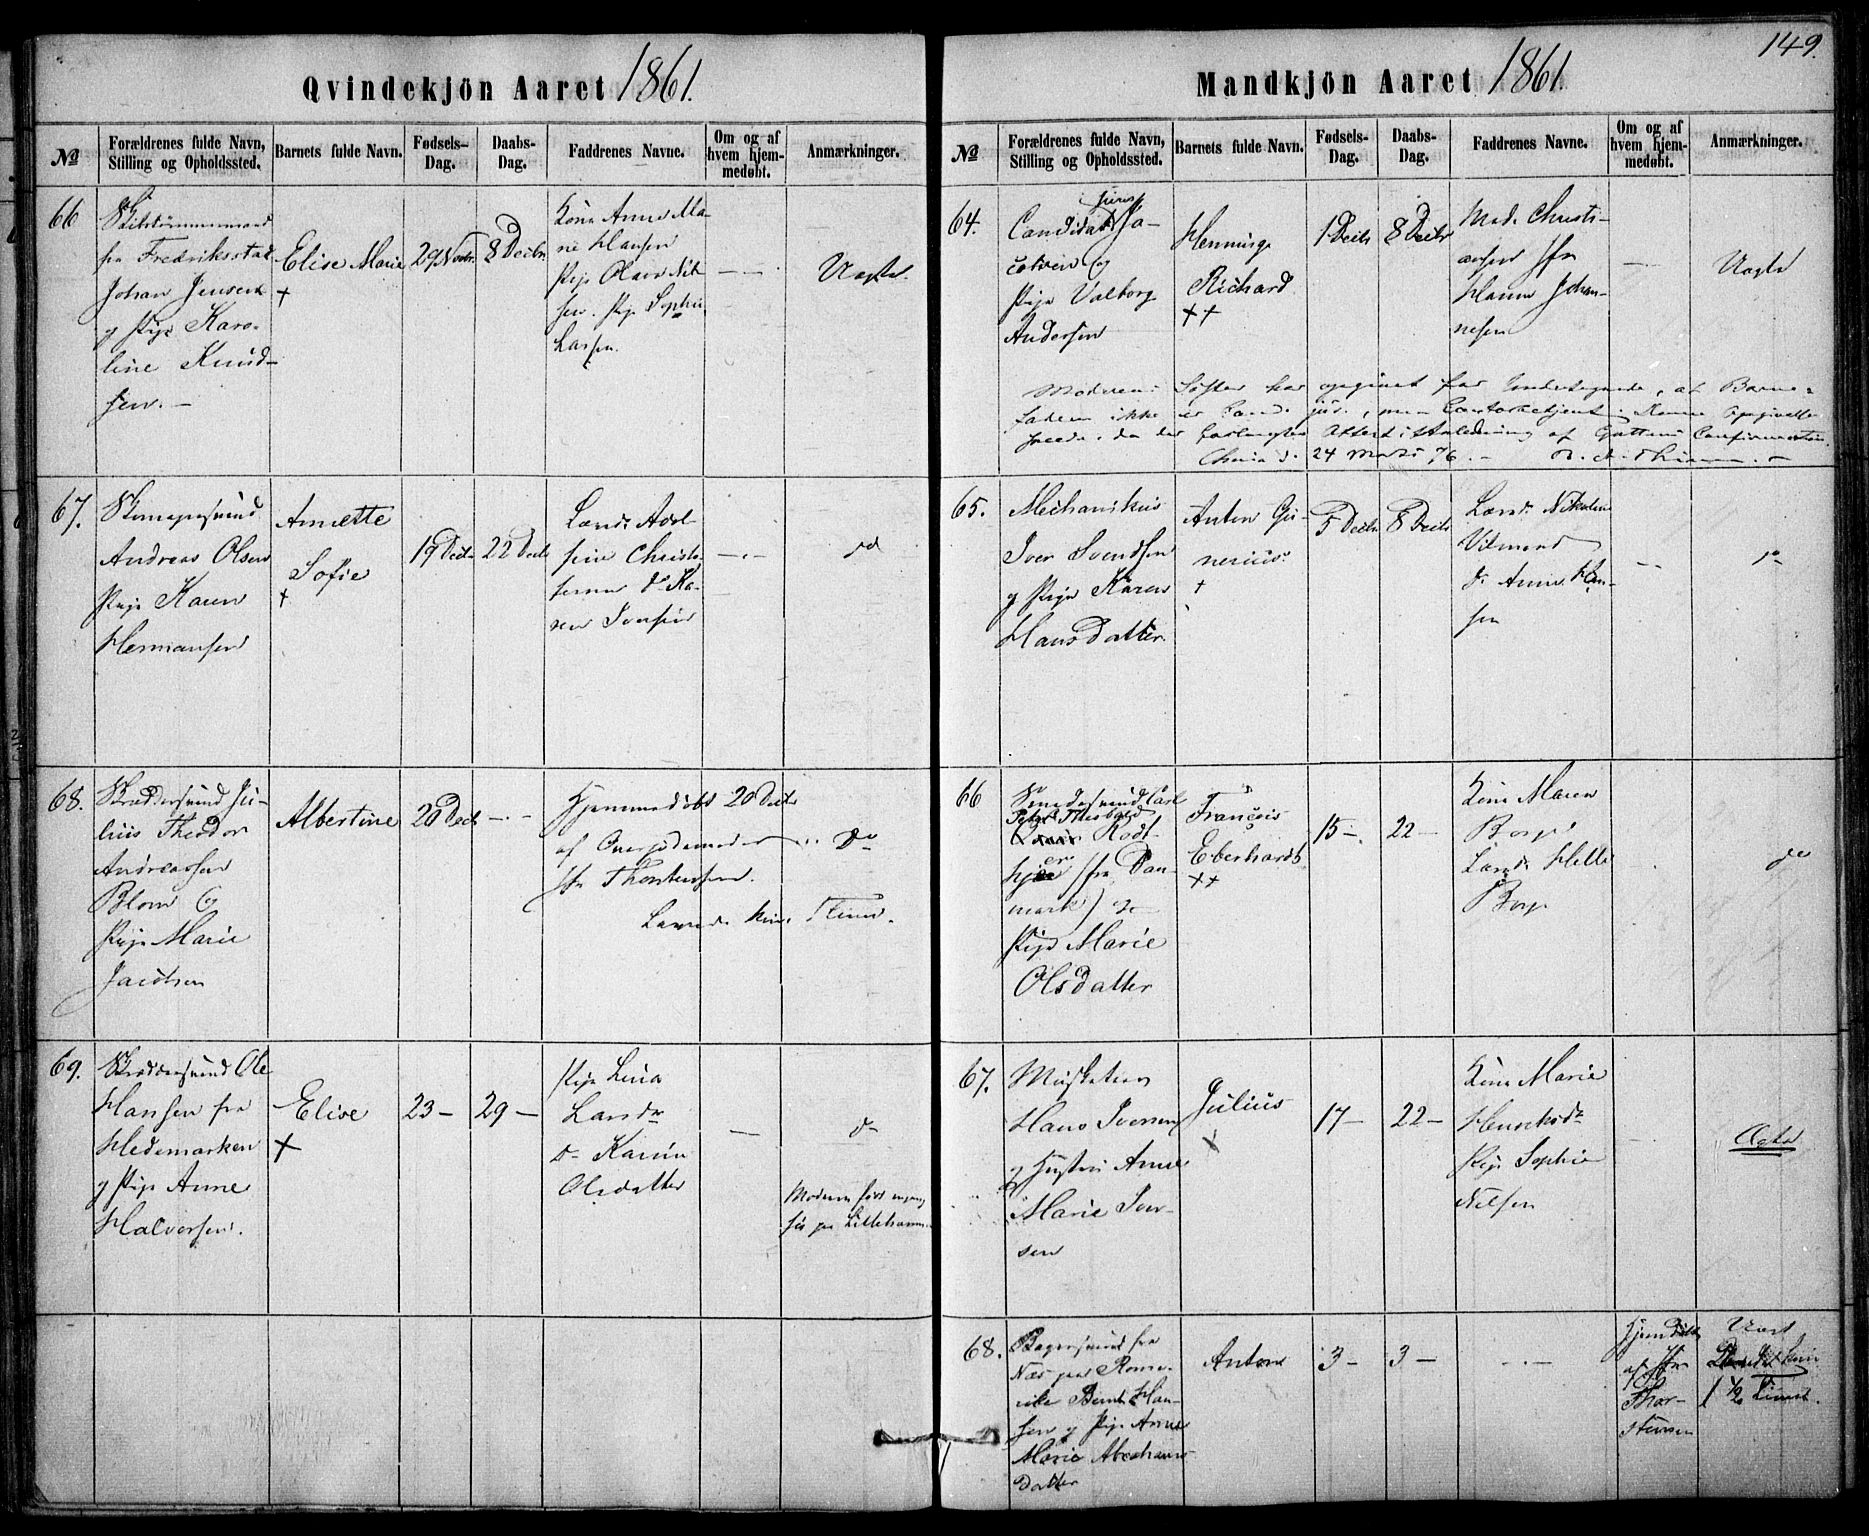 149.
Qvindekjön Aaret 1861.
№
Forældrenes fulde Navn,
Stilling og Opholdssted.
Barnets fulde Navn.
Fødsels-
Dag.
Daabs-
Dag.
Faddrenes Navne.
Om og af
hvem hjem-
medøbt.
Anmærkninger.
66
fra Fredriksstad
Johan Jensen
og Pige Karo-
line Knud-
sen. —
Elise Marie
+
29 Novbr.
8 Decbr
Kone Anne Ma-
rie Hansen
Pige Olava Nil-
sen. Pige Sophie
Larsen.
Uægte.
67.
Andreas Olsen
Pige Karen
Hermansen
Annette
Sofie
+
19 Decbr
22 Decbr
do
68.
Skræddersvend Ju-
lius Theodor
Andreassen
Blom og
Pige Marie
Jacobsen
Albertine
20 Decbr
Hjemmedöbt 20 Decbr
af Overjordemoder
Thorstensen.
Levede kun Time.
do
69.
Skræddersvend Ole
Hansen fra
Hedemarken
og Pige Anne
Halvorsen.
Elise
+
23 —
29 —
Pige Lina
Do Karine
Olsdatter
do
Mandkjön Aaret 1861.
№
Forældrenes fulde Navn,
Stilling og Opholdssted.
Barnets fulde Navn.
Fødsels-
Dag.
Daabs-
Dag.
Faddrenes Navne.
Om og af
hvem hjem-
medøbt.
Anmærkninger.
64.
Candidat juris Ja-
cobsen og
Pige Valborg
Andersen
Henninge
Richard
++
1 Decbr
8 Decbr
Mad. Christi-
ansen
Hanna Johan-
nesen
Uægte
Moderens Söster har opgivet for Undertegnede, at Barne-
faderen ikke er Cand. jur., men Contorbetjent. Denne Opgivelse
skeede, da der forlangtes Attest i Anledning af Guttens Confirmation.
Chria d. 24 Marts 76. —
65.
Mechanikus
Iver Svendsen
og Pige Karen
Hansdatter
Anton Gu-
nerius
+
5 Decbr
8 Decbr
do Anne Han-
sen
do
66
Carl
Peter Theobald
(fra Dan-
mark) og
Pige Marie
Olsdatter
François
Eberhardt
++
15 —
22 —
Kone Maren
Borge
Borge
do
67.
Musketeer
Hans Iversen
og Hustru Anne
Marie Iver-
sen
Julius
+
17 —
22 —
Kone Marie
Pige Sophie
Nilsen
Ægte
68.
Bagersvend fra
Næs paa Rome-
rike Bernt Han-
sen og Pige Anne
Marie Abrahams-
datter
Anton
3 —
3 —
Hjemdöbt
af Jfr
Thor-
stensen
Uægt
kun
1 ½ Time.